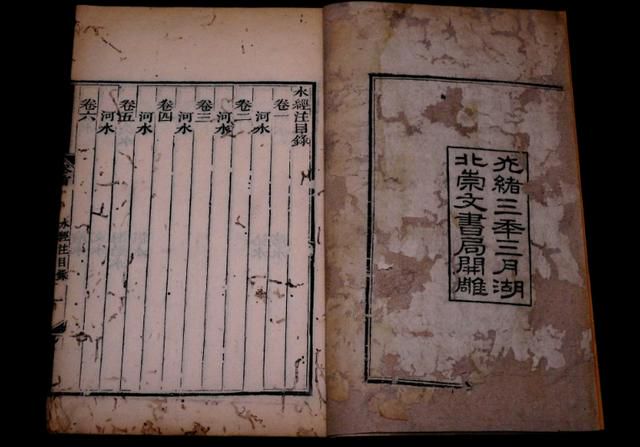 光緒三年三月湖
北崇文書局開雕
水經注目錄
卷一
河水
卷二
河水
卷三
河水
卷四
河水
卷五
河水
卷六
水經注目錄
一